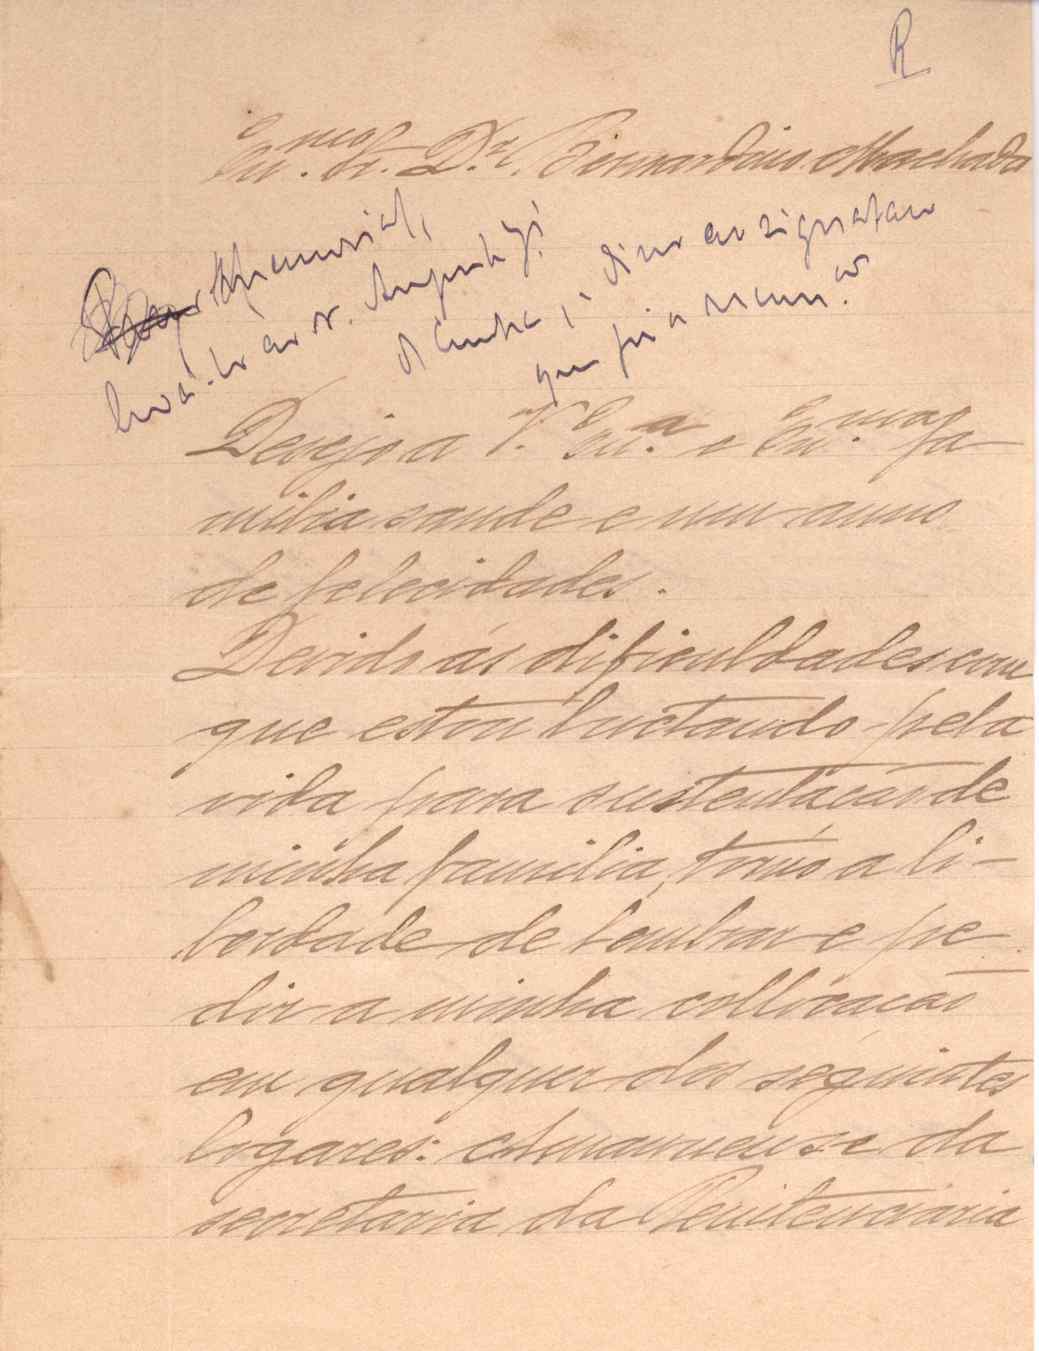 R
Ex.mo Sr. Dr. Bernardino Machado
Memorial,
levá-lo ao Sr. Augusto
dizer ao signatario
que foi a recom.ão
Desejo a V. Ex.a e Ex.ma fa-
milia saude e um anno
de felecidades.
Devido ás dificuldades com
que estou luctando pela
vida para sustentação de
minha familia, tomo a li-
berdade de lembrar e pe-
dir a minha collocação
em qualquer dos seguintes
logares: Amanuense da
secretaria da Penitenciaria